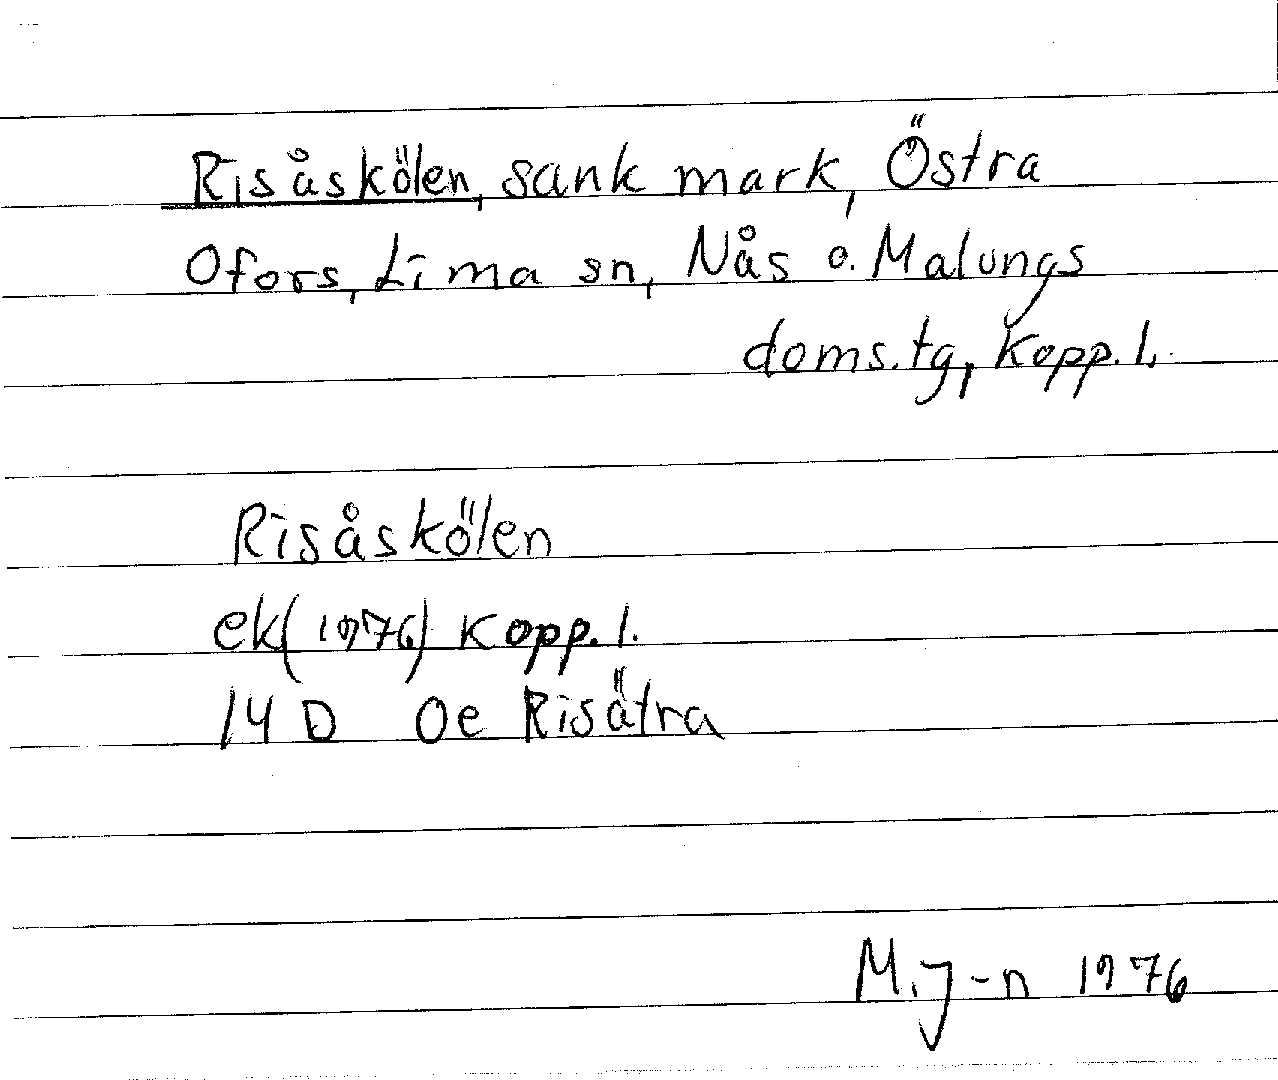 Risåskölen, sank mark, Östra
Ofors, Lima sn, Nås o. Malungs
doms.tg, Kopp. l.
Risåskölen
ek(1976) Kopp. l.
14 D Oe Risätra
M. J-n 1976